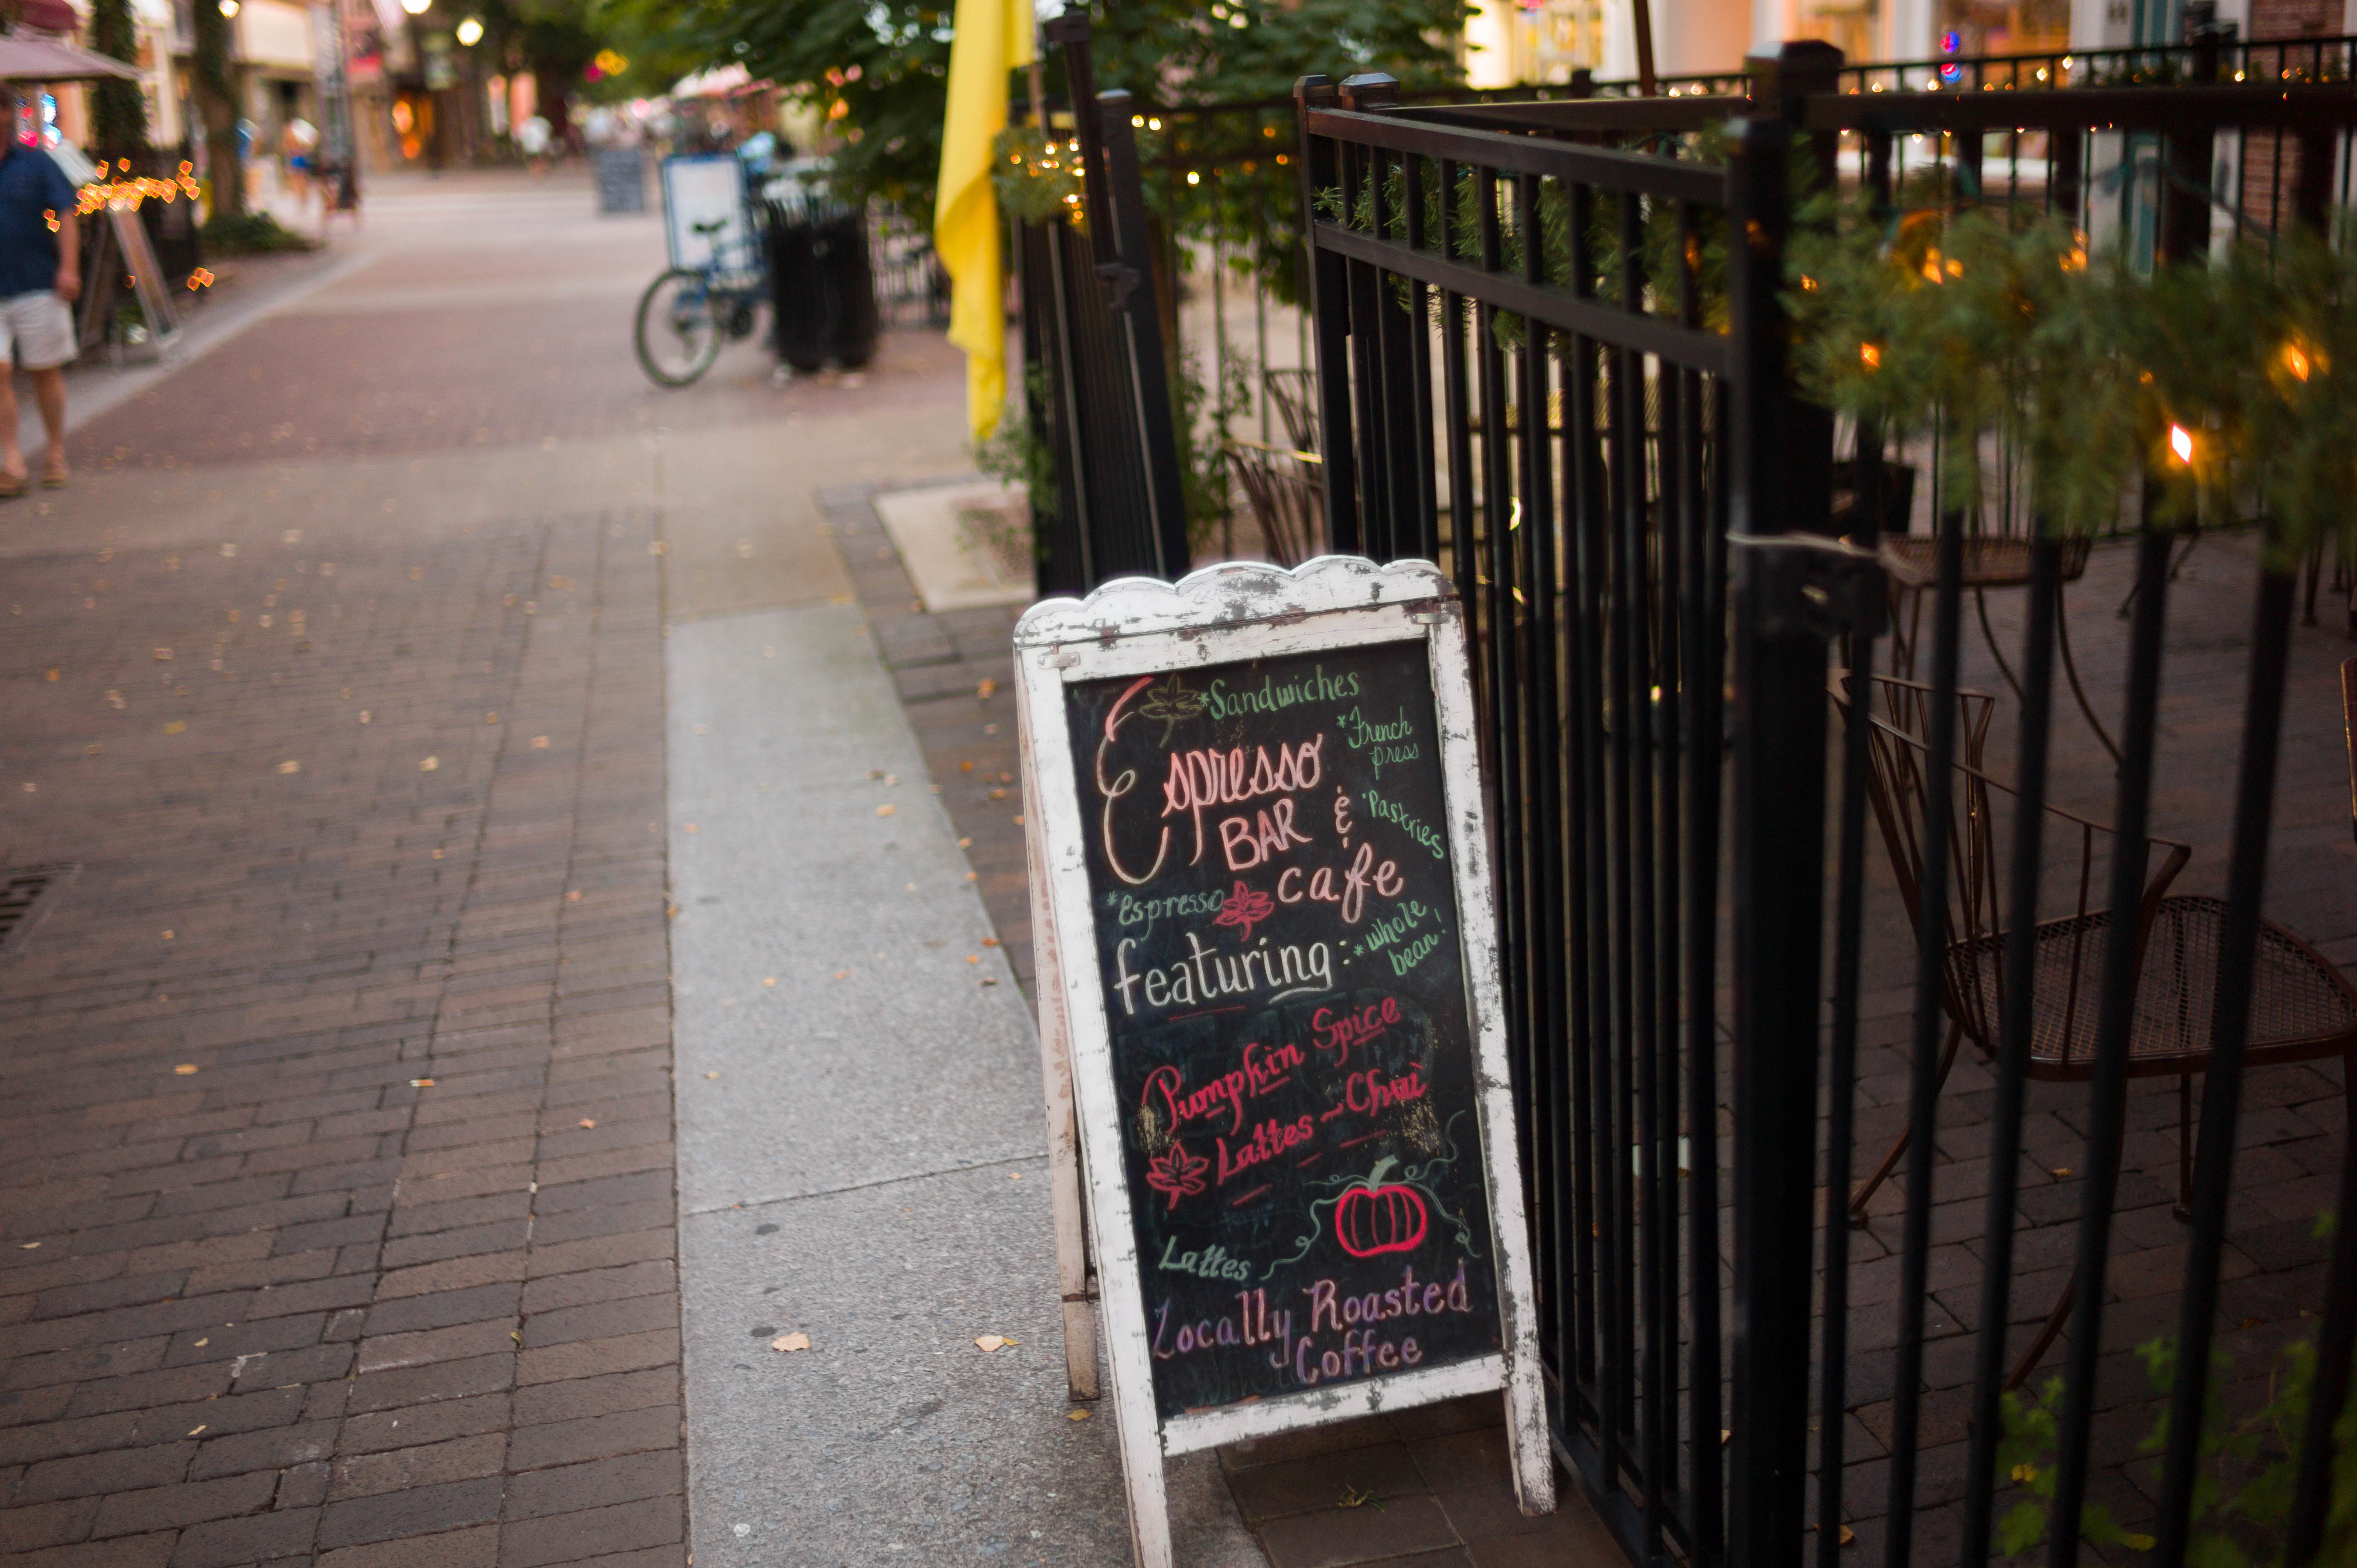 *Sandwiches
*French
press
Espresso
BAR &
*Pastries
cafe
*espresso
featuring:
*whole
bean!
Pumpkin Spice
Lattes - Chai
Lattes
Locally Roasted
Coffee